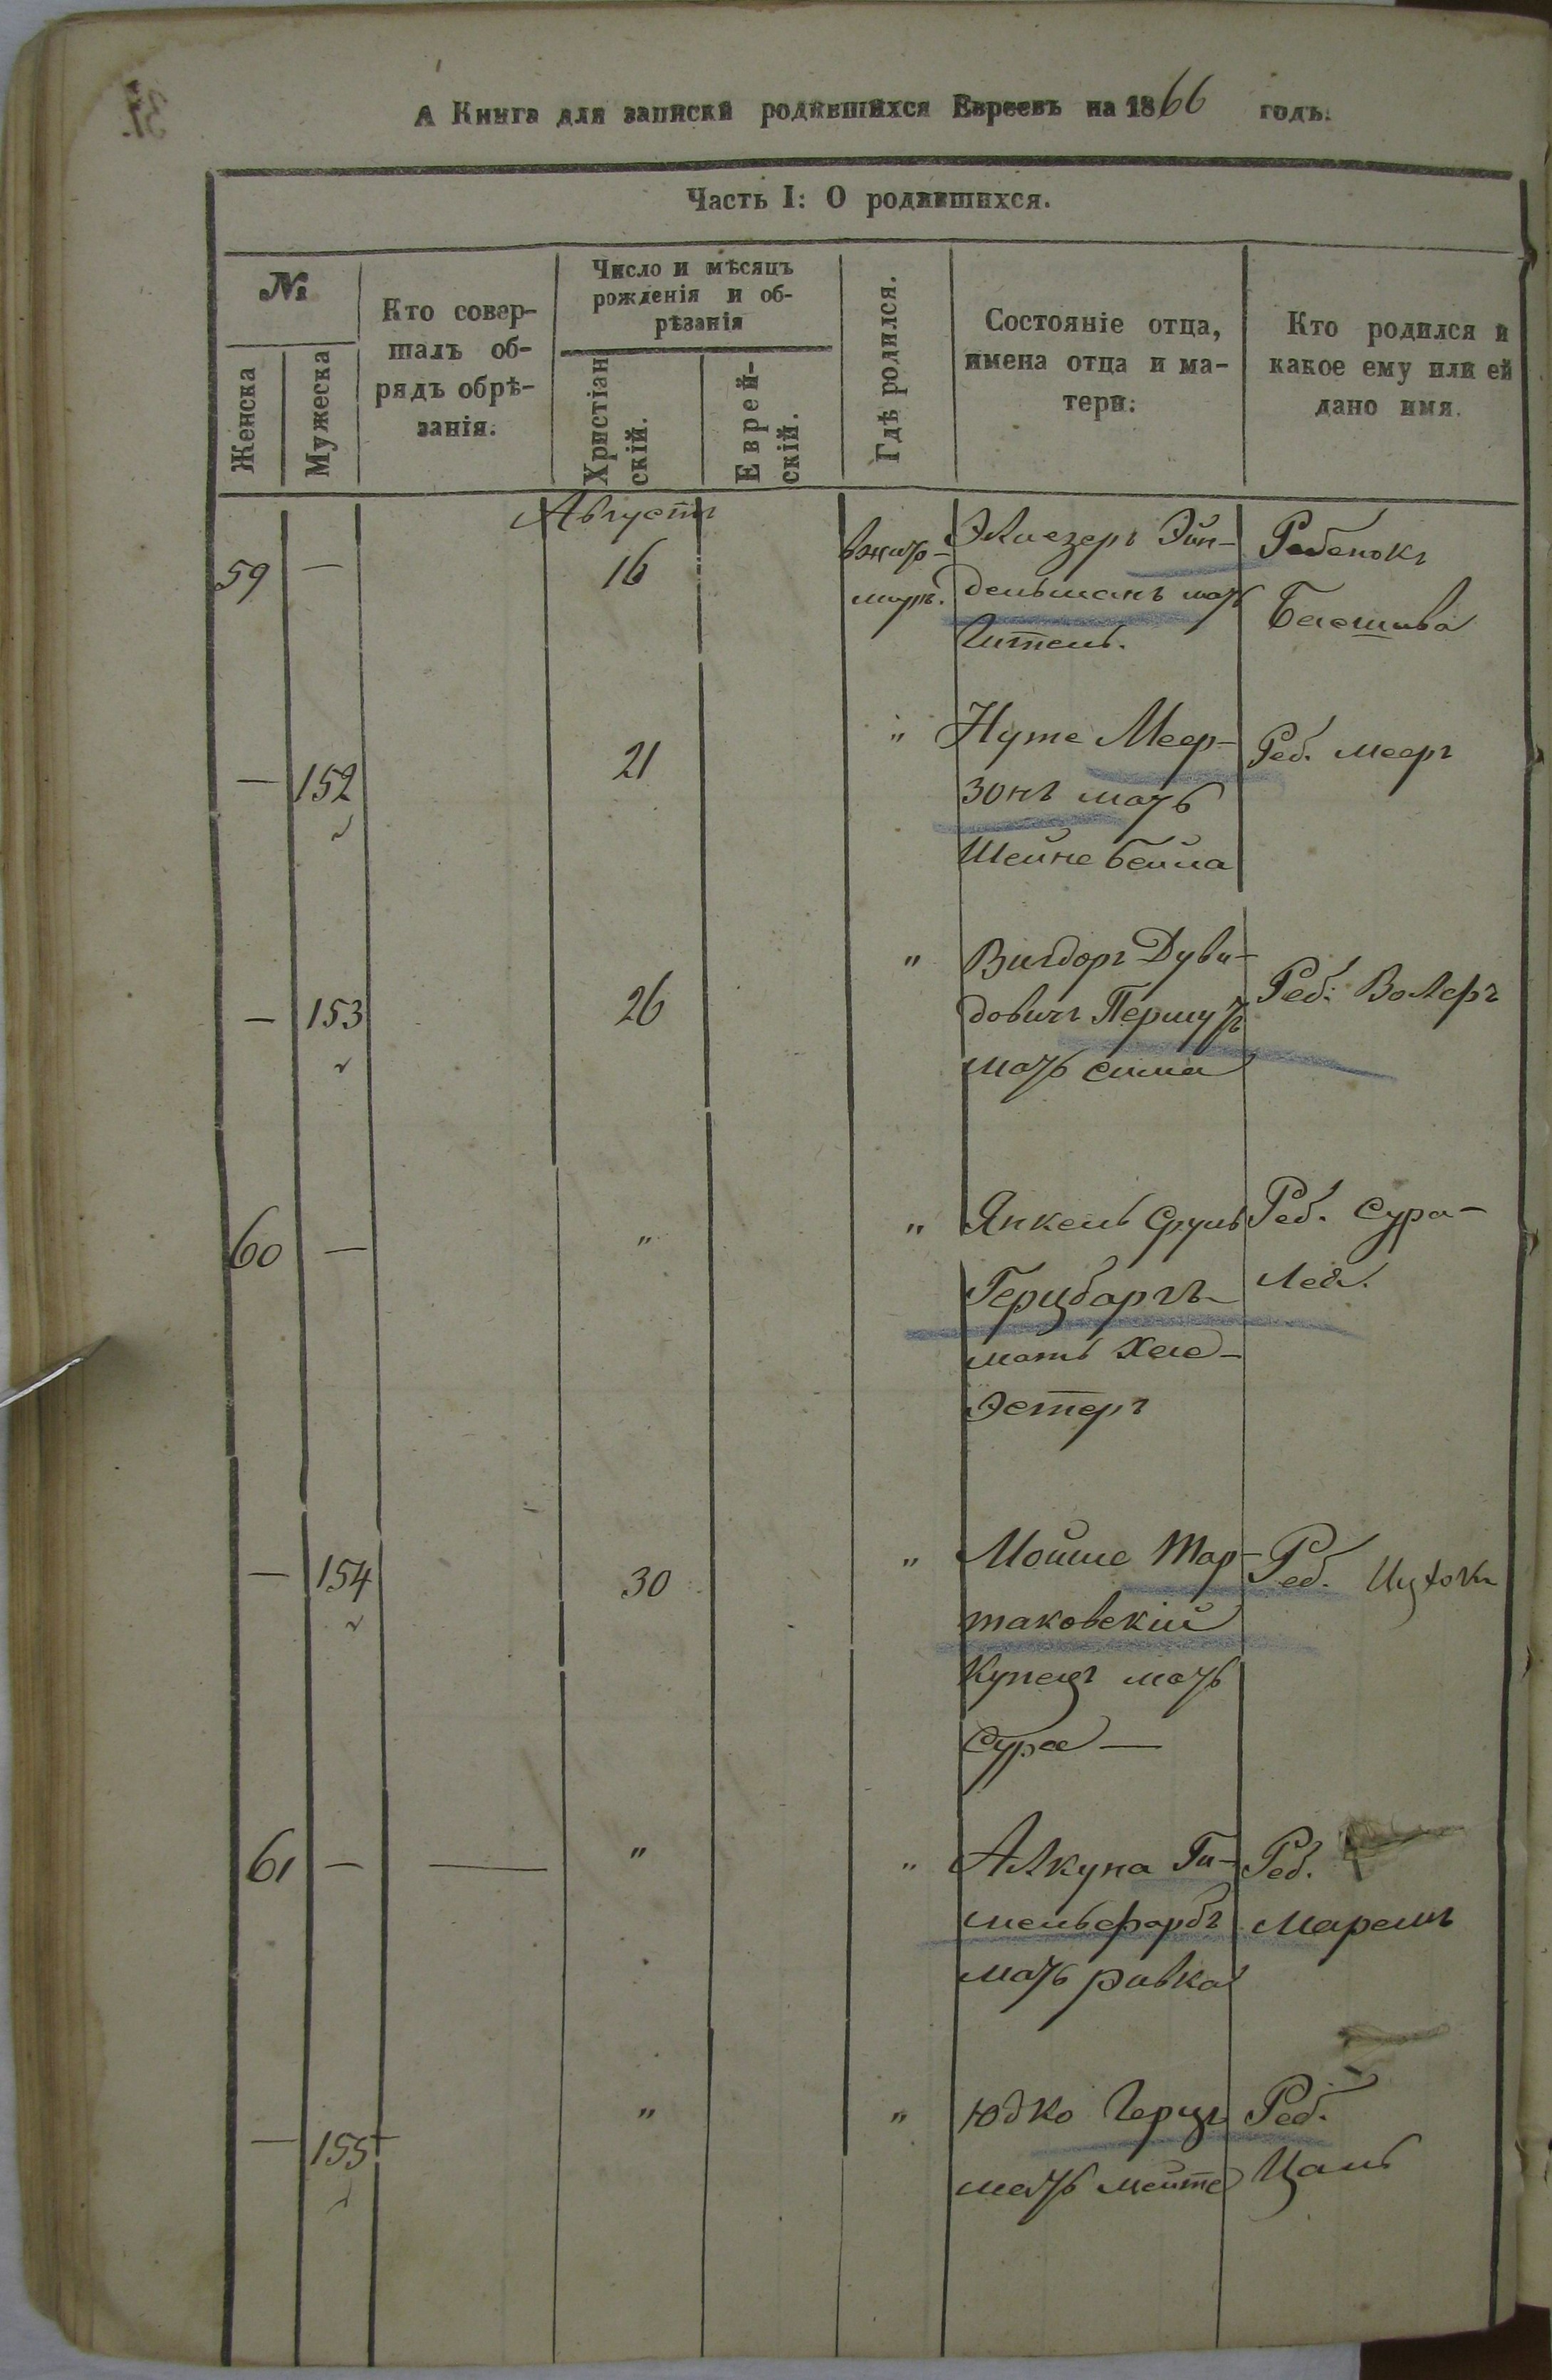 А Книга для записки родившихся Евреевъ на 1866 годъ.
Часть I: О родившихся.
№
Женска
Мужеска
Кто совер-
шалъ об-
рядъ обрѣ-
занія.
Число и мѣсяцъ
рожденія и об-
рѣзанія
Христіан
скій.
Еврей-
скій.
Гдѣ родился.
Состояніе отца,
имена отца и ма-
тери:
Кто родился и
какое ему или ей
дано имя.
Августъ
59 — 16 вжито-
мирѣ.
Элиезеръ Эйн-
дельманъ мать
Гитель.
Ребенокъ
— 152 21 " Нуте Меер-
зонъ мать
Шейне бейла
Реб. мееръ
— 153 26 " Вигдоръ Дуви-
довичъ
мать сима
Реб.
60 — " " Янкель Сруль
Герцбаргъ
мать Хае-
Эстеръ
Реб. Сура-
Лея.
— 154 30 " Мойше Тар-
таковскій
Купецъ мать
Сура —
Реб.
61 — — " " Алкуна Ги-
мельфарбъ
мать ривка
Реб.
— 155 " " Юдко Герцъ
мать
Реб.